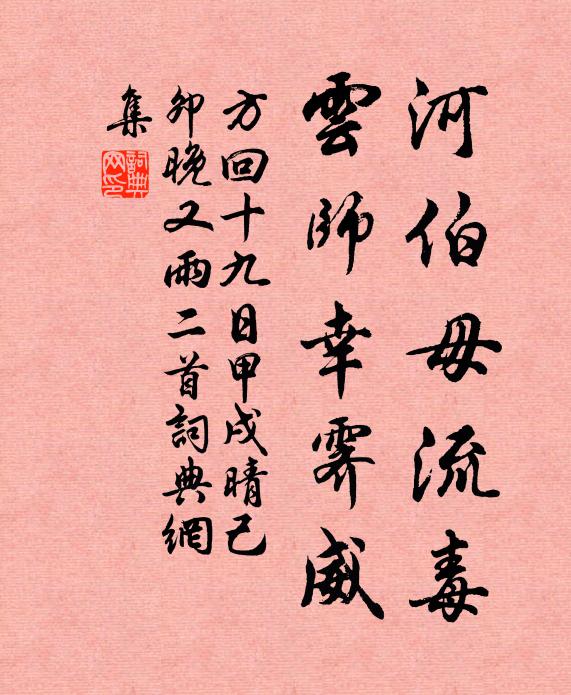 河伯毋流毒
雲師幸霽威
方回十九日甲戌晴己
卯晚又雨二首詞典網
集
詞典
网印